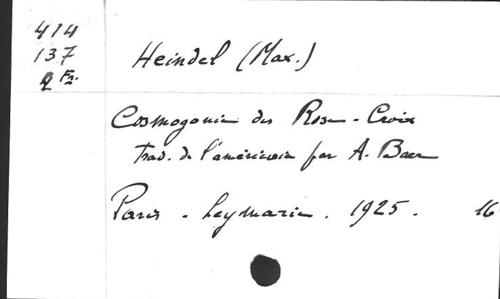 414
137
2 Fr.
Heindel (Max.)
Cosmogonie des Rose-Croix
Trad. de l'américain par A. Baer
Paris - Leymarie. 1925. 16